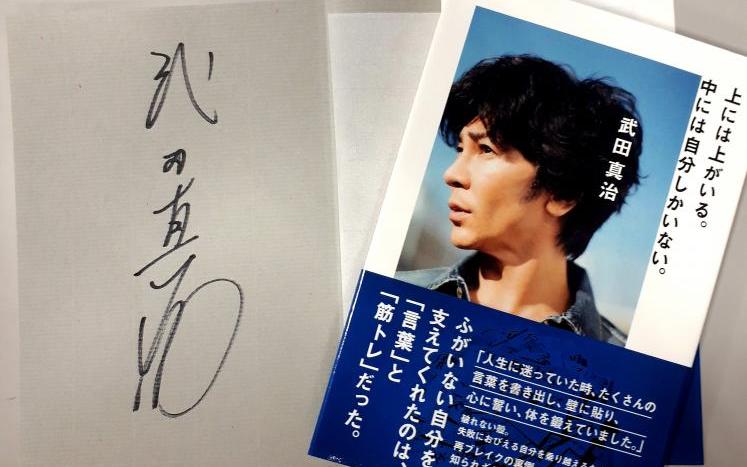 武田真治
上には上がいる。
中には自分しかいない。
武田真治
ふがいない自分を
支えてくれたのは、
「言葉」と
「筋トレ」だった。
「人生に迷っていた時、たくさんの
言葉を書き出し、壁に貼り、
心に誓い、体を鍛えていました。」
破れない殻。
失敗におびえる自分を乗り越える
再ブレイクの裏側
知られざる